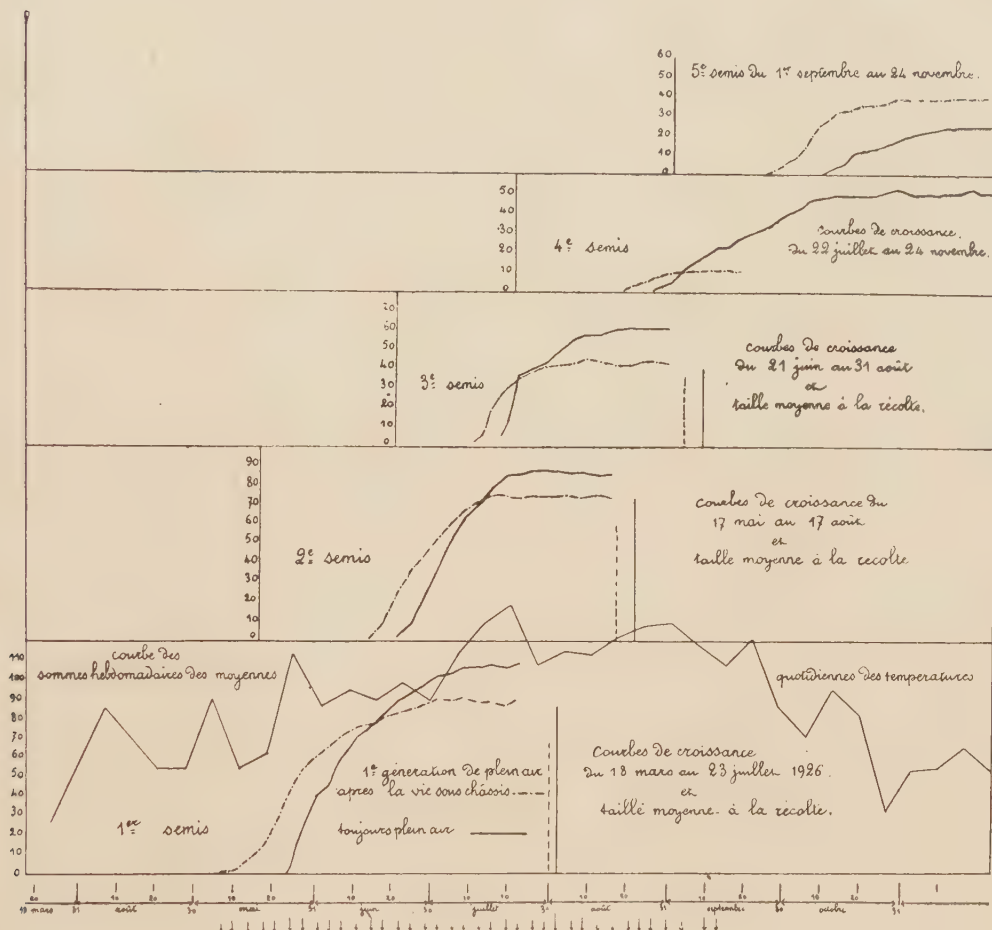 60
50
40
30
20
10
0
5e semis du 1er septembre au 24 novembre.
50
40
30
20
10
0
4e semis
courbes de croissance.
du 22 juillet au 24 novembre.
70
60
50
40
30
20
10
0
3e semis
courbes de croissance
du 21 juin au 31 août
et
taille moyenne à la récolte.
90
80
70
60
50
40
30
20
10
0
2e semis
courbes de croissance du
17 mai au 17 août
et
taille moyenne à la recolte
110
100
90
80
70
60
50
40
30
20
10
0
courbe des
sommes hebdomadaires des moyennes
quotidiennes des temperatures
1er semis
1e génération de plein air
après la vie sous châssis
toujours plein air
Courbes de croissance
du 18 mars au 23 juillet 1926.
et
taille moyenne à la récolte.
20 31 10 20 30 10 20 31 10 20 30 10 20 31 10 20 31 10 20 30 10 20 31
mars août mai juin juillet août septembre octobre